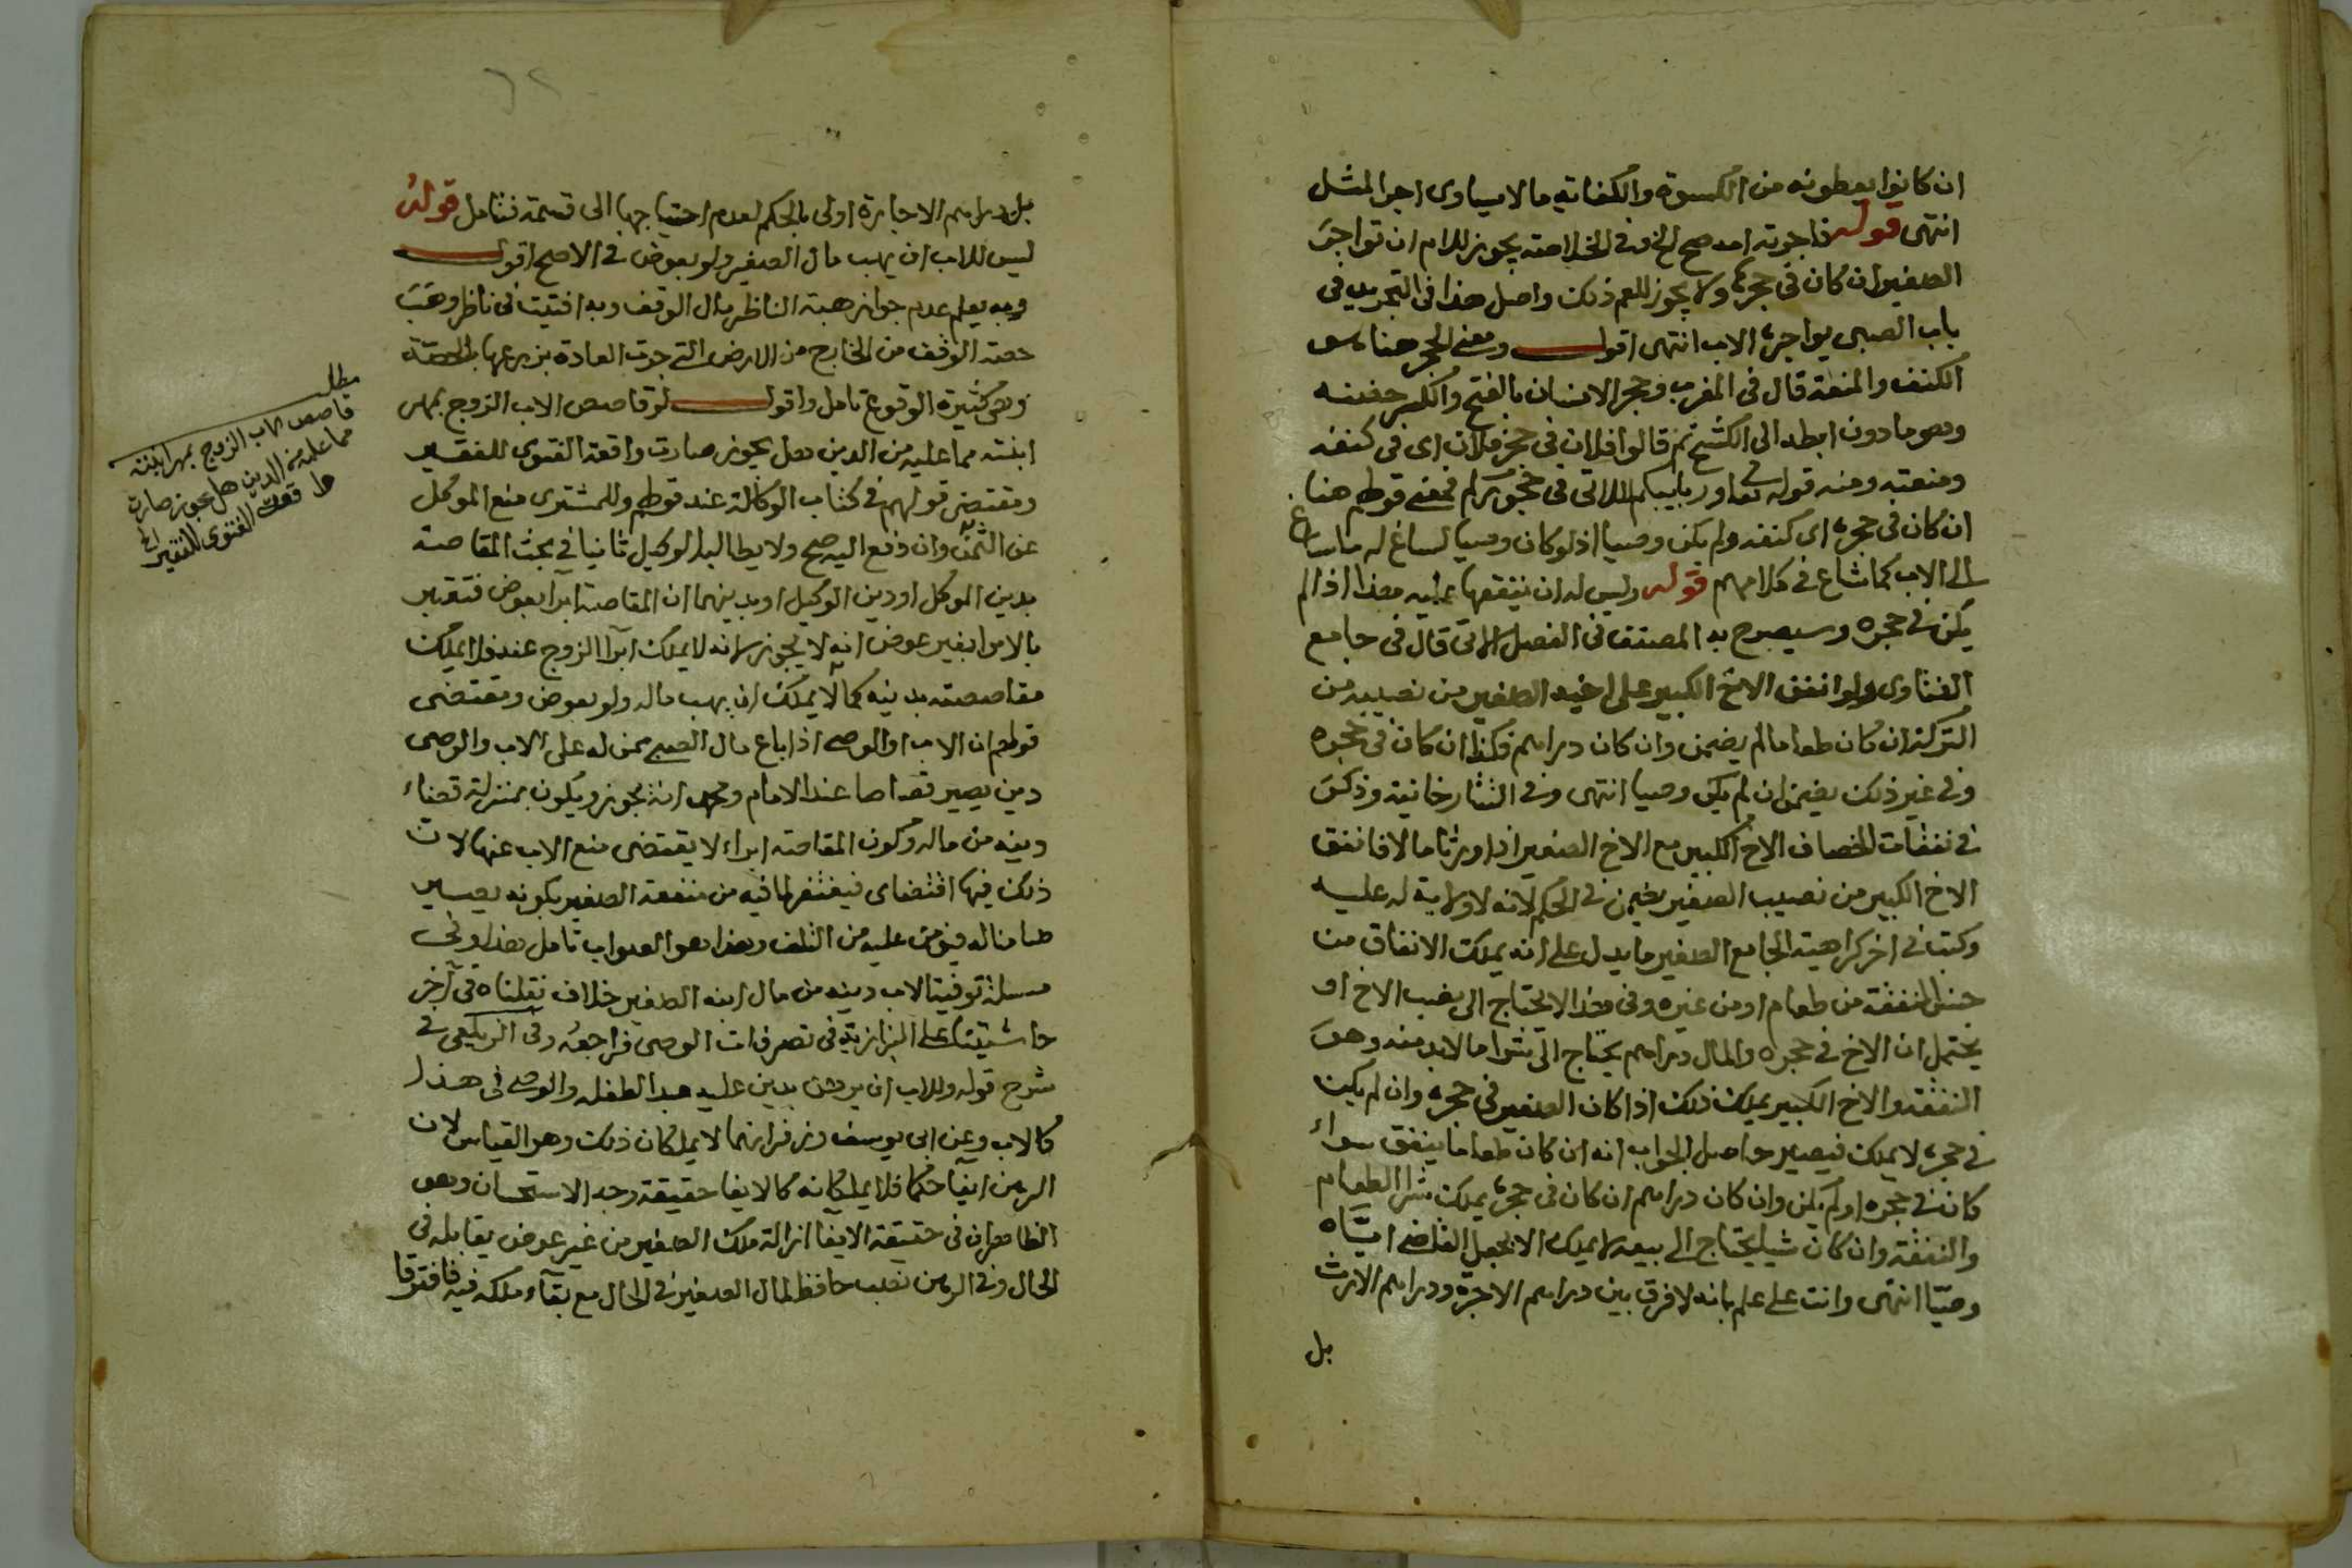 ان كانوا يعطونه من الكسوة والكفاية ما لا يساوى اجر المثل
انتهى قوله فاجرته امه صح الخ وفى الخلاصة يجوز للام ان تواجر
الصغير ان كان فى حجرها ولا يجوز للعم ذلك واصل هذا فى التجريد فى
باب الصبى يواجره الاب انتهى اقول ومعنى الحجر هنا
الكنف والمنعة قال فى المغرب وحجر الانسان بالفتح والكسر حضنه
وهو ما دون ابطه الى الكشح ثم قالوا فلان فى حجر فلان اى فى كنفه
ومنعته ومنه قوله تعا وربايبكم اللاتى فى حجوركم فمعنى قولهم هنا
ان كان فى حجره اى كنفه ولم يكن وصيا اذ لو كان وصيا لساغ له ما ساغ
الى الاب كما شاع فى كلامهم قوله وليس له ان ينفقها عليه هذا اذا لم
يكن فى حجره وسيصرح به المصنف فى الفصل الاتى قال فى جامع
الفتاوى ولو انفق الاخ الكبير على اخيه الصغير من نصيبه من
التركة ان كان طعاما لم يضمن وان كان دراهم فكذا ان كان فى حجره
وفى غير ذلك يضمن ان لم يكن وصيا انتهى وفى التتارخانية وذكر
فى نفقات الخصاف الاخ الكبير مع الاخ الصغير اذا ورثا مالا فانفق
الاخ الكبير من نصيب الصغير يضمن فى الحكم لانه لا ولاية له عليه
وكتب فى اخر كراهية الجامع الصغير ما يدل على انه يملك الانفاق من
جنس النفقة من طعام او من غيره وفى هذا لا يحتاج الى نصب الاخ او
يحتمل ان الاخ فى حجره والمال دراهم يحتاج الى شرا ما لابد منه وهو
النفقة والاخ الكبير يملك ذلك اذا كان الصغير فى حجره وان لم يكن
فى حجره لا يملك فيصير حاصل الجواب انه ان كان طعاما ينفق سواء
كان فى حجره او لم يكن وان كان دراهم ان كان فى حجره يملك شرا الطعام
والنفقة وان كان شيا يحتاج الى بيعه لا يملك الا بجعل القاضى اياه
وصيا انتهى وانت على علم بانه لا فرق بين دراهم الاجرة ودراهم الارث
بل
بل دراهم الاجارة اولى بالحكم لعدم احتياجها الى قسمة فتامل قوله
ليس للاب ان يهب مال الصغير ولو بعوض فى الاصح اقول
وبه يعلم عدم جواز هبة الناظر مال الوقف وبه افتيت فى ناظر وهب
حصة الوقف من الخارج من الارض التى جرت العادة بزرعها بالحصة
وهى كثيرة الوقوع تامل واقول لو قاصص الاب الزوج بمهر
ابنته مما عليه من الدين هل يجوز صارت واقعة الفتوى للفقير
ومقتضى قولهم فى كتاب الوكالة عند قولهم وللمشترى منع الموكل
عن الثمن وان دفع اليه صح ولا يطالبه الوكيل ثانيا فى بحث المقاصة
بدين الموكل او دين الوكيل او بدينهما ان المقاصة ابرا بعوض فتعتبر
بالابرا بغير عوض انه لا يجوز لانه لا يملك ابرا الزوج عنه فلا يملك
مقاصصته بدينه كما لا يملك ان يهب ماله ولو بعوض ومقتضى
قولهم ان الاب او الوصى اذا باع مال الصبى ممن له على الاب والوصى
دين يصير قصاصا عند الامام ومحمد انه يجوز ويكون بمنزلة قضاء
دينه من ماله وكون المقاصة ابراء لا يقتضى منع الاب عنها لان
ذلك فيها اقتضاى فيغتفر لما فيه من منفعة الصغير بكونه يصير
ضامنا له فيؤمن عليه من التلف وهذا هو الصواب تامل هذا وفى
مسئلة توفية الاب دينه من مال ابنه الصغير خلاف نقلناه فى آخر
حاشيتنا على البزازية فى تصرفات الوصى فراجعه وفى الزيلعى فى
شرح قوله وللاب ان يرهن بدين عليه عبدا لطفله والوصى فى هذا
كالاب وعن ابى يوسف وزفر انهما لا يملكان ذلك وهو القياس لان
الرهن ايفا حكما فلا يملكانه كالايفا حقيقة وجه الاستحسان وهو
الظاهر ان فى حقيقة الايفا ازالة ملك الصغير من غير عوض يقابله فى
الحال وفى الرهن نصب حافظ لمال الصغير فى الحال مع بقاء ملكه فيه فافترقا
مطلب
قاصص الاب الزوج بمهر ابنته
مما عليه من الدين هل يجوز صارت
واقعة الفتوى للفقير الخ